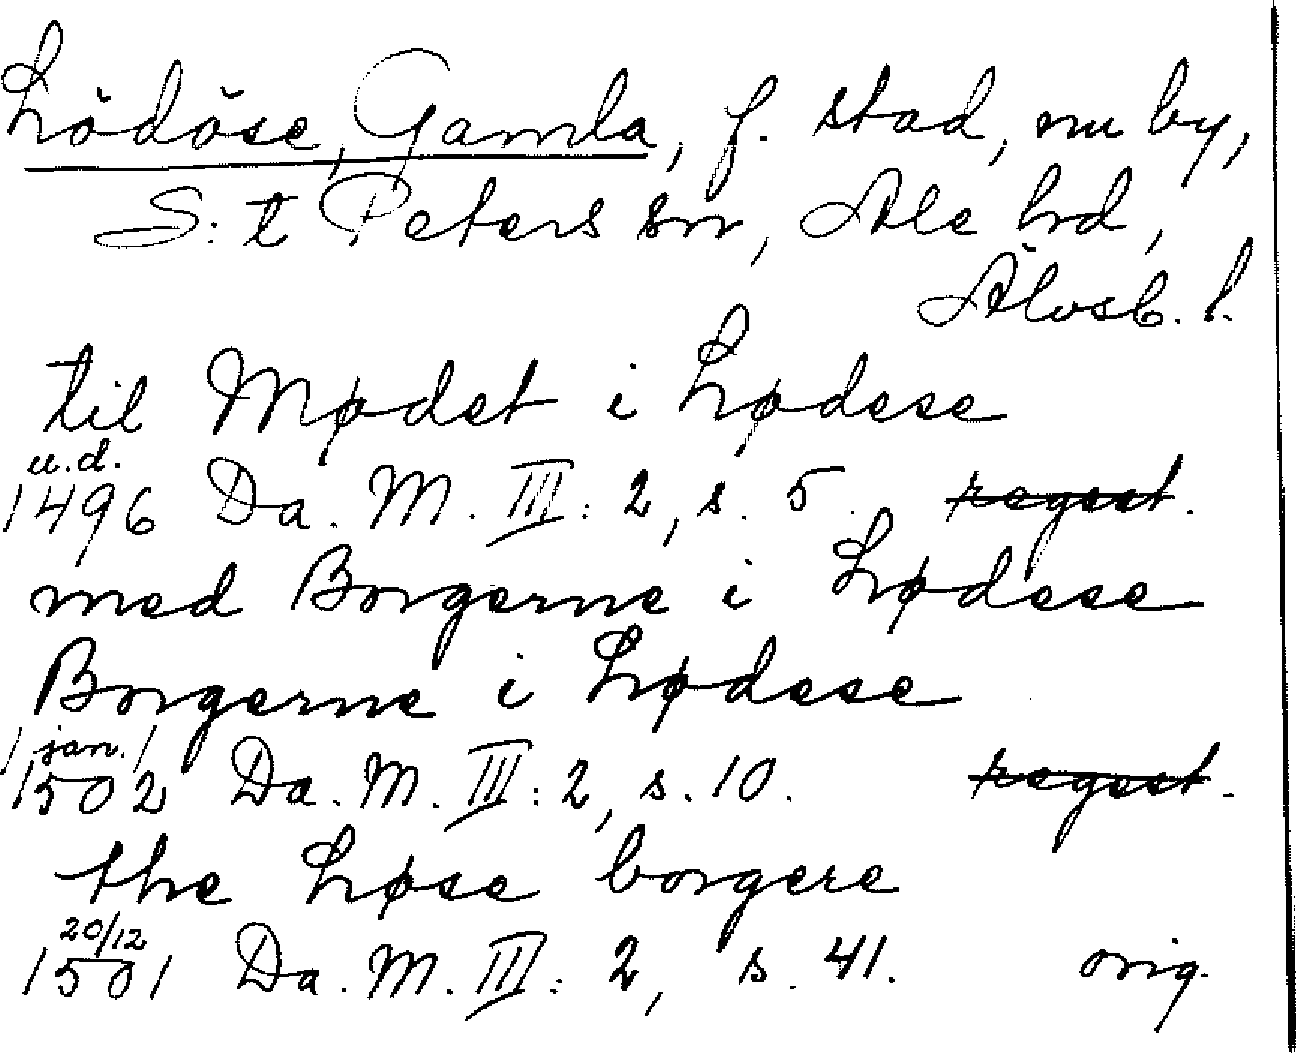 Lödöse, Gamla, f. stad, nu by,
S:t Peters sn, Ale hd,
Älvsb. l.
til Mødet i Lødese
u.d.
1496 Da. M. III: 2, s. 5. regest.
med Borgerne i Lødese
Borgerne i Lødese
/jan./
1502 Da. M. III: 2, s. 10. regest.
the Løse borgere
20/12
1501 Da. M. III: 2, s. 41. orig.